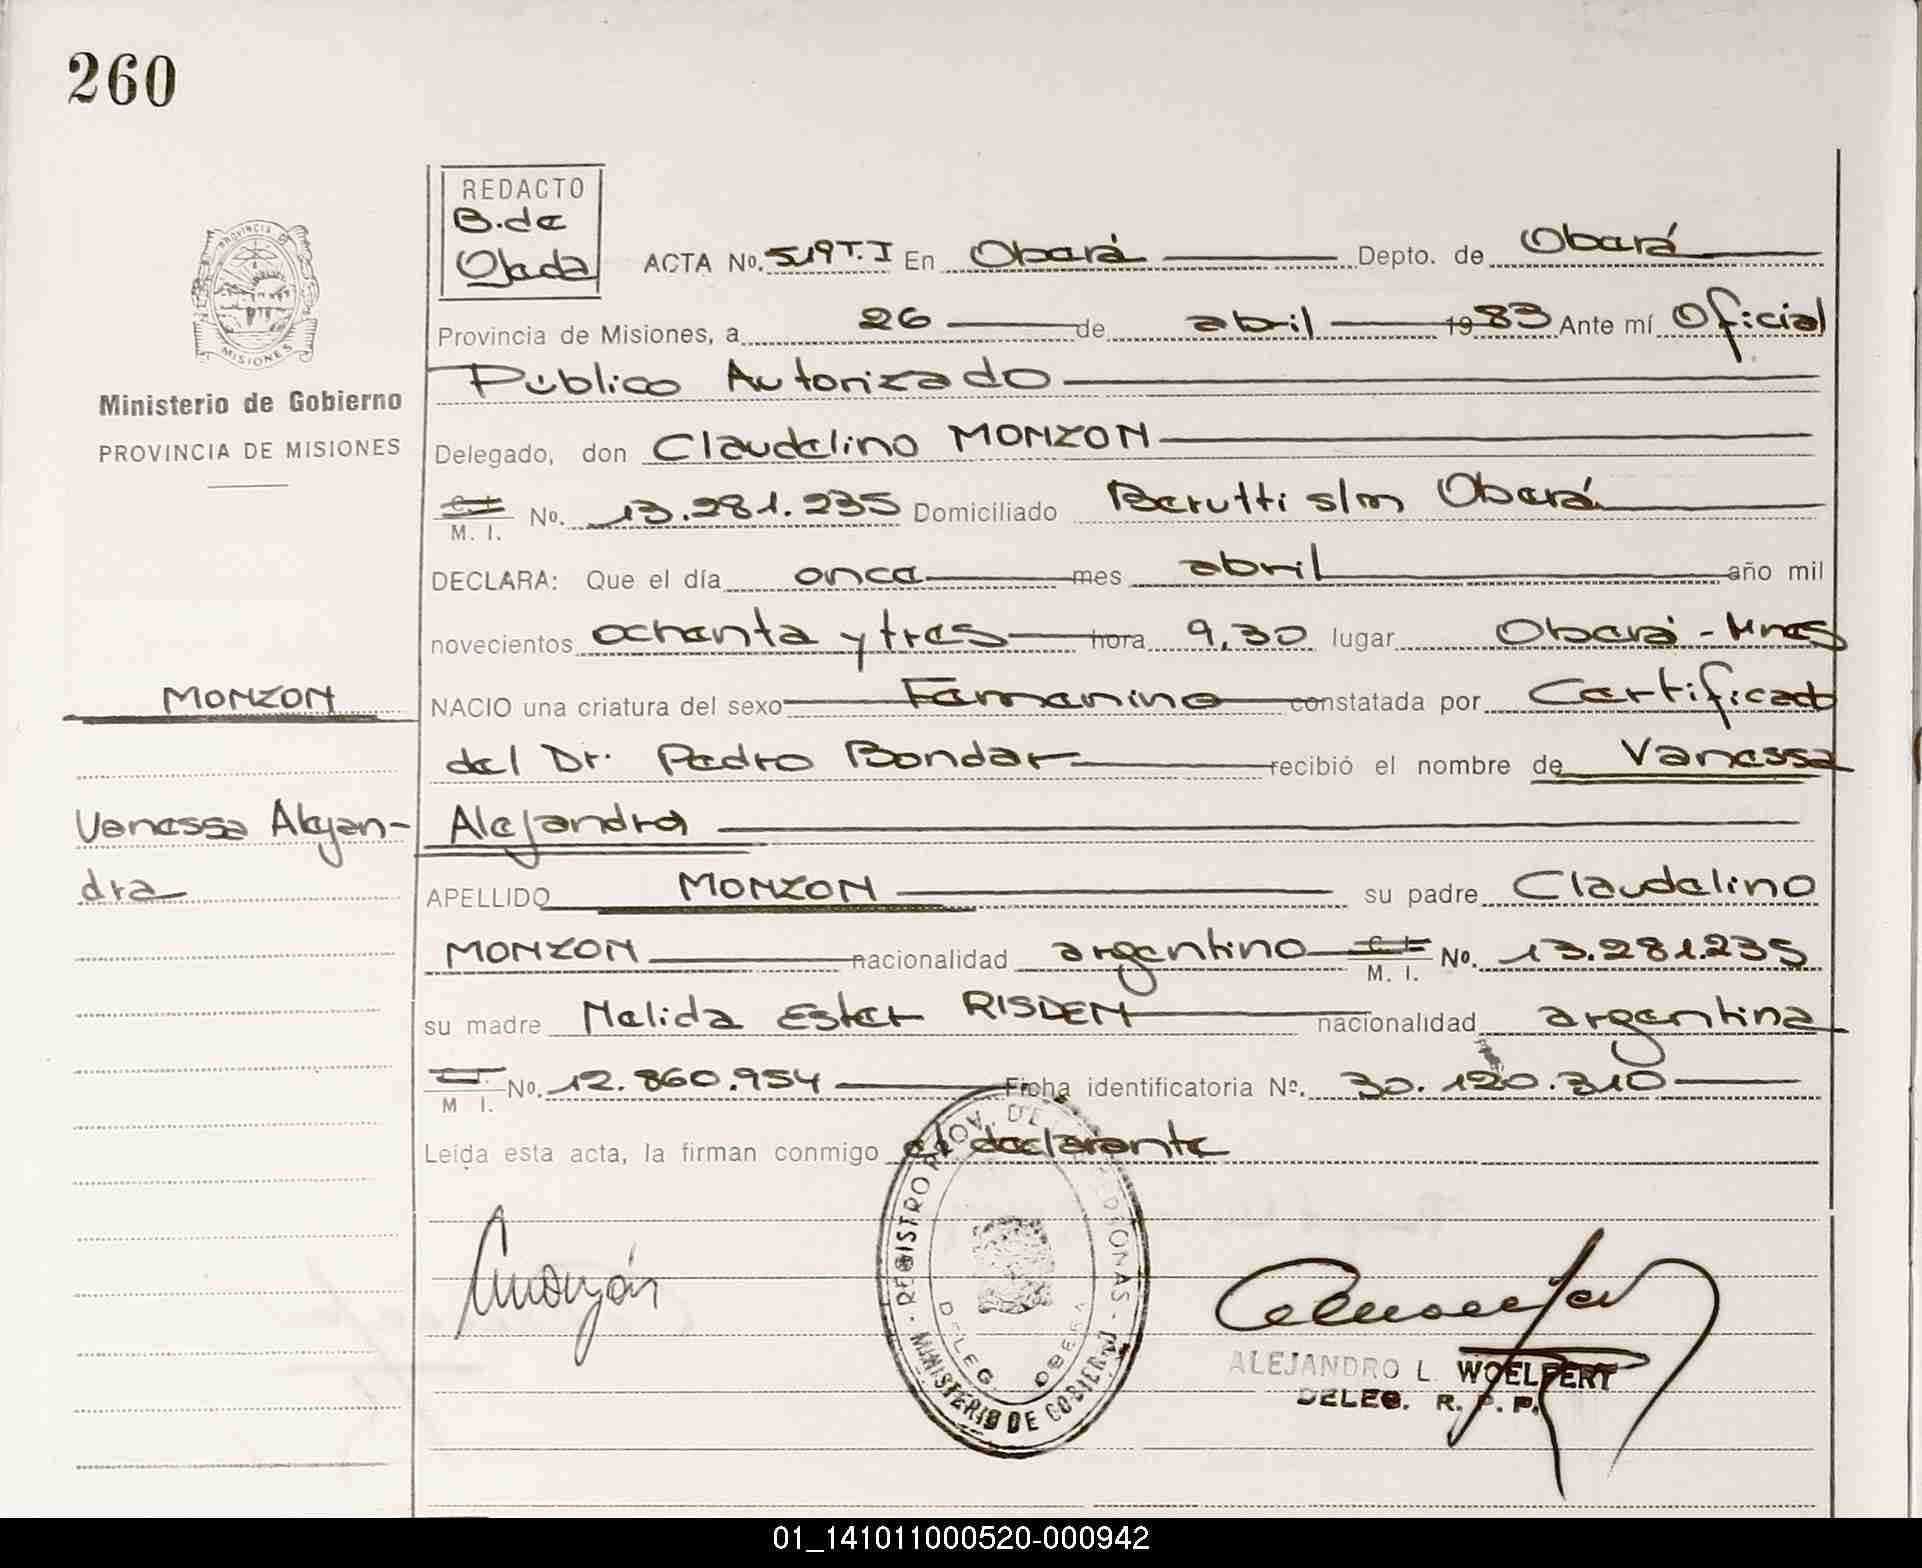 260
REDACTO
B. de
Ojeda
ACTA No. 519 T.I En Oberá Depto. de Oberá
Provincia de Misiones, a 26 de abril 1983 Ante mí Oficial
Público Autorizado
PROVINCIA DE
MISIONES
Ministerio de Gobierno
PROVINCIA DE MISIONES
Delegado, don Claudelino MONZON
C. I.
M. I. No. 13.281.235 Domiciliado Berutti s/n Oberá
DECLARA: Que el día once mes abril año mil
novecientos ochenta y tres hora 9,30 lugar Oberá - Mnes
MONZON
NACIO una criatura del sexo Femenino constatada por Certificado
del Dr. Pedro Bondar recibió el nombre de Vanessa
Vanessa Alejan-
dra
Alejandra
APELLIDO MONZON su padre Claudelino
MONZON nacionalidad argentino C. I. M. I. No. 13.281.235
su madre Nelida Ester RISDEN nacionalidad argentina
M I. No. 12.860.954 Ficha identificatoria Nº. 30.120.310
Leída esta acta, la firman conmigo el declarante
Monzón
REGISTRO PROV. DE LAS PERSONAS - MINISTERIO DE GOBIERNO
DELEG. OBERA
ALEJANDRO L. WOELFERT
DELEG. R. P. P.
01_141011000520-000942